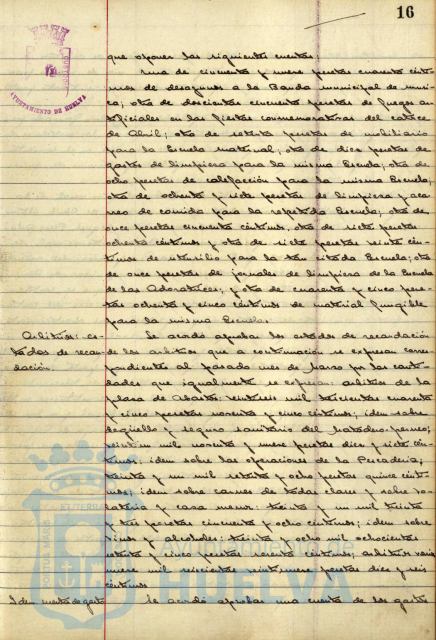 16
AYUNTAMIENTO DE HUELVA
que oponer las siguientes cuentas:
Una de cincuenta y nueve pesetas cuarenta cénti-
mos de desayunos a la Banda municipal de músi-
ca; otra de doscientas cincuenta pesetas de fuegos ar-
tificiales en las fiestas conmemorativas del catorce
de Abril; otra de setenta pesetas de mobiliario
para la Escuela maternal; otra de diez pesetas de
gastos de limpieza para la misma Escuela; otra de
ocho pesetas de calefacción para la misma Escuela;
otra de ochenta y siete pesetas de limpieza y aca-
rreo de comida para la repetida Escuela; otra de
once pesetas cincuenta céntimos, otra de siete pesetas
ochenta céntimos y otra de siete pesetas veinte cén-
timos de utensilio para la tan citada Escuela; otra
de once pesetas de jornales de limpieza de la Escuela
de las Adoratrices; y otra de cuarenta y cinco pese-
tas ochenta y cinco céntimos de material fungible
para la misma Escuela.
Arbitrios: es-
tados de recau-
dación
Se acordó aprobar los estados de recaudación
de los arbitrios que a continuación se expresan corres-
pondientes al pasado mes de Marzo por las canti-
dades que igualmente se expresan: arbitrios de la
plaza de Abastos: veintiseis mil trescientas cuarenta
y cinco pesetas noventa y cinco céntimos; idem sobre
degüello y seguro sanitario del Matadero:
veintiun mil noventa y nueve pesetas diez y siete cén-
timos; idem sobre las operaciones de la Pescadería;
treinta y un mil setenta y ocho pesetas quince cénti-
mos; idem sobre carnes de todas clases y sobre vo-
latería y caza menor: treinta y un mil treinta
y tres pesetas cincuenta y ocho céntimos; idem sobre
vinos y alcoholes: treinta y ocho mil ochocientas
setenta y cinco pesetas sesenta céntimos; arbitrios varios
nueve mil seiscientas veintinueve pesetas diez y seis
céntimos
Idem cuenta de gastos
Se acordó aprobar una cuenta de los gastos
HUELVA